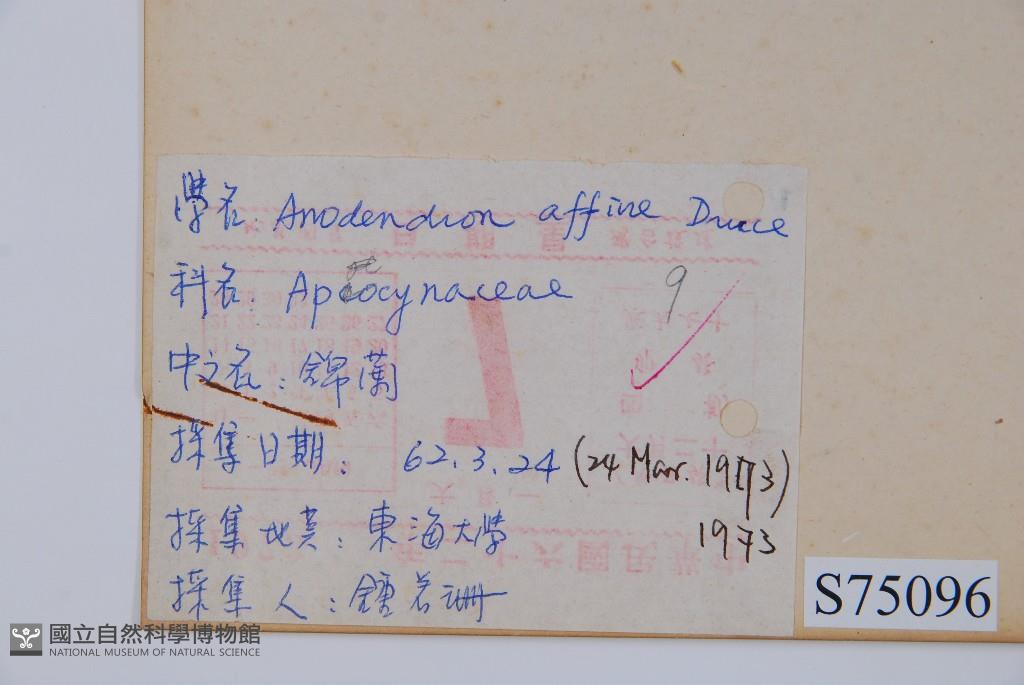 學名: Anodendron affine Druce
科名: Apocynaceae
9
中文名: 錦蘭
採集日期: 62.3.24 (24 Mar. 1973)
1973
採集地莫: 東海大學
採集人: 鍾若珊
S75096
國立自然科學博物館
NATIONAL MUSEUM OF NATURAL SCIENCE